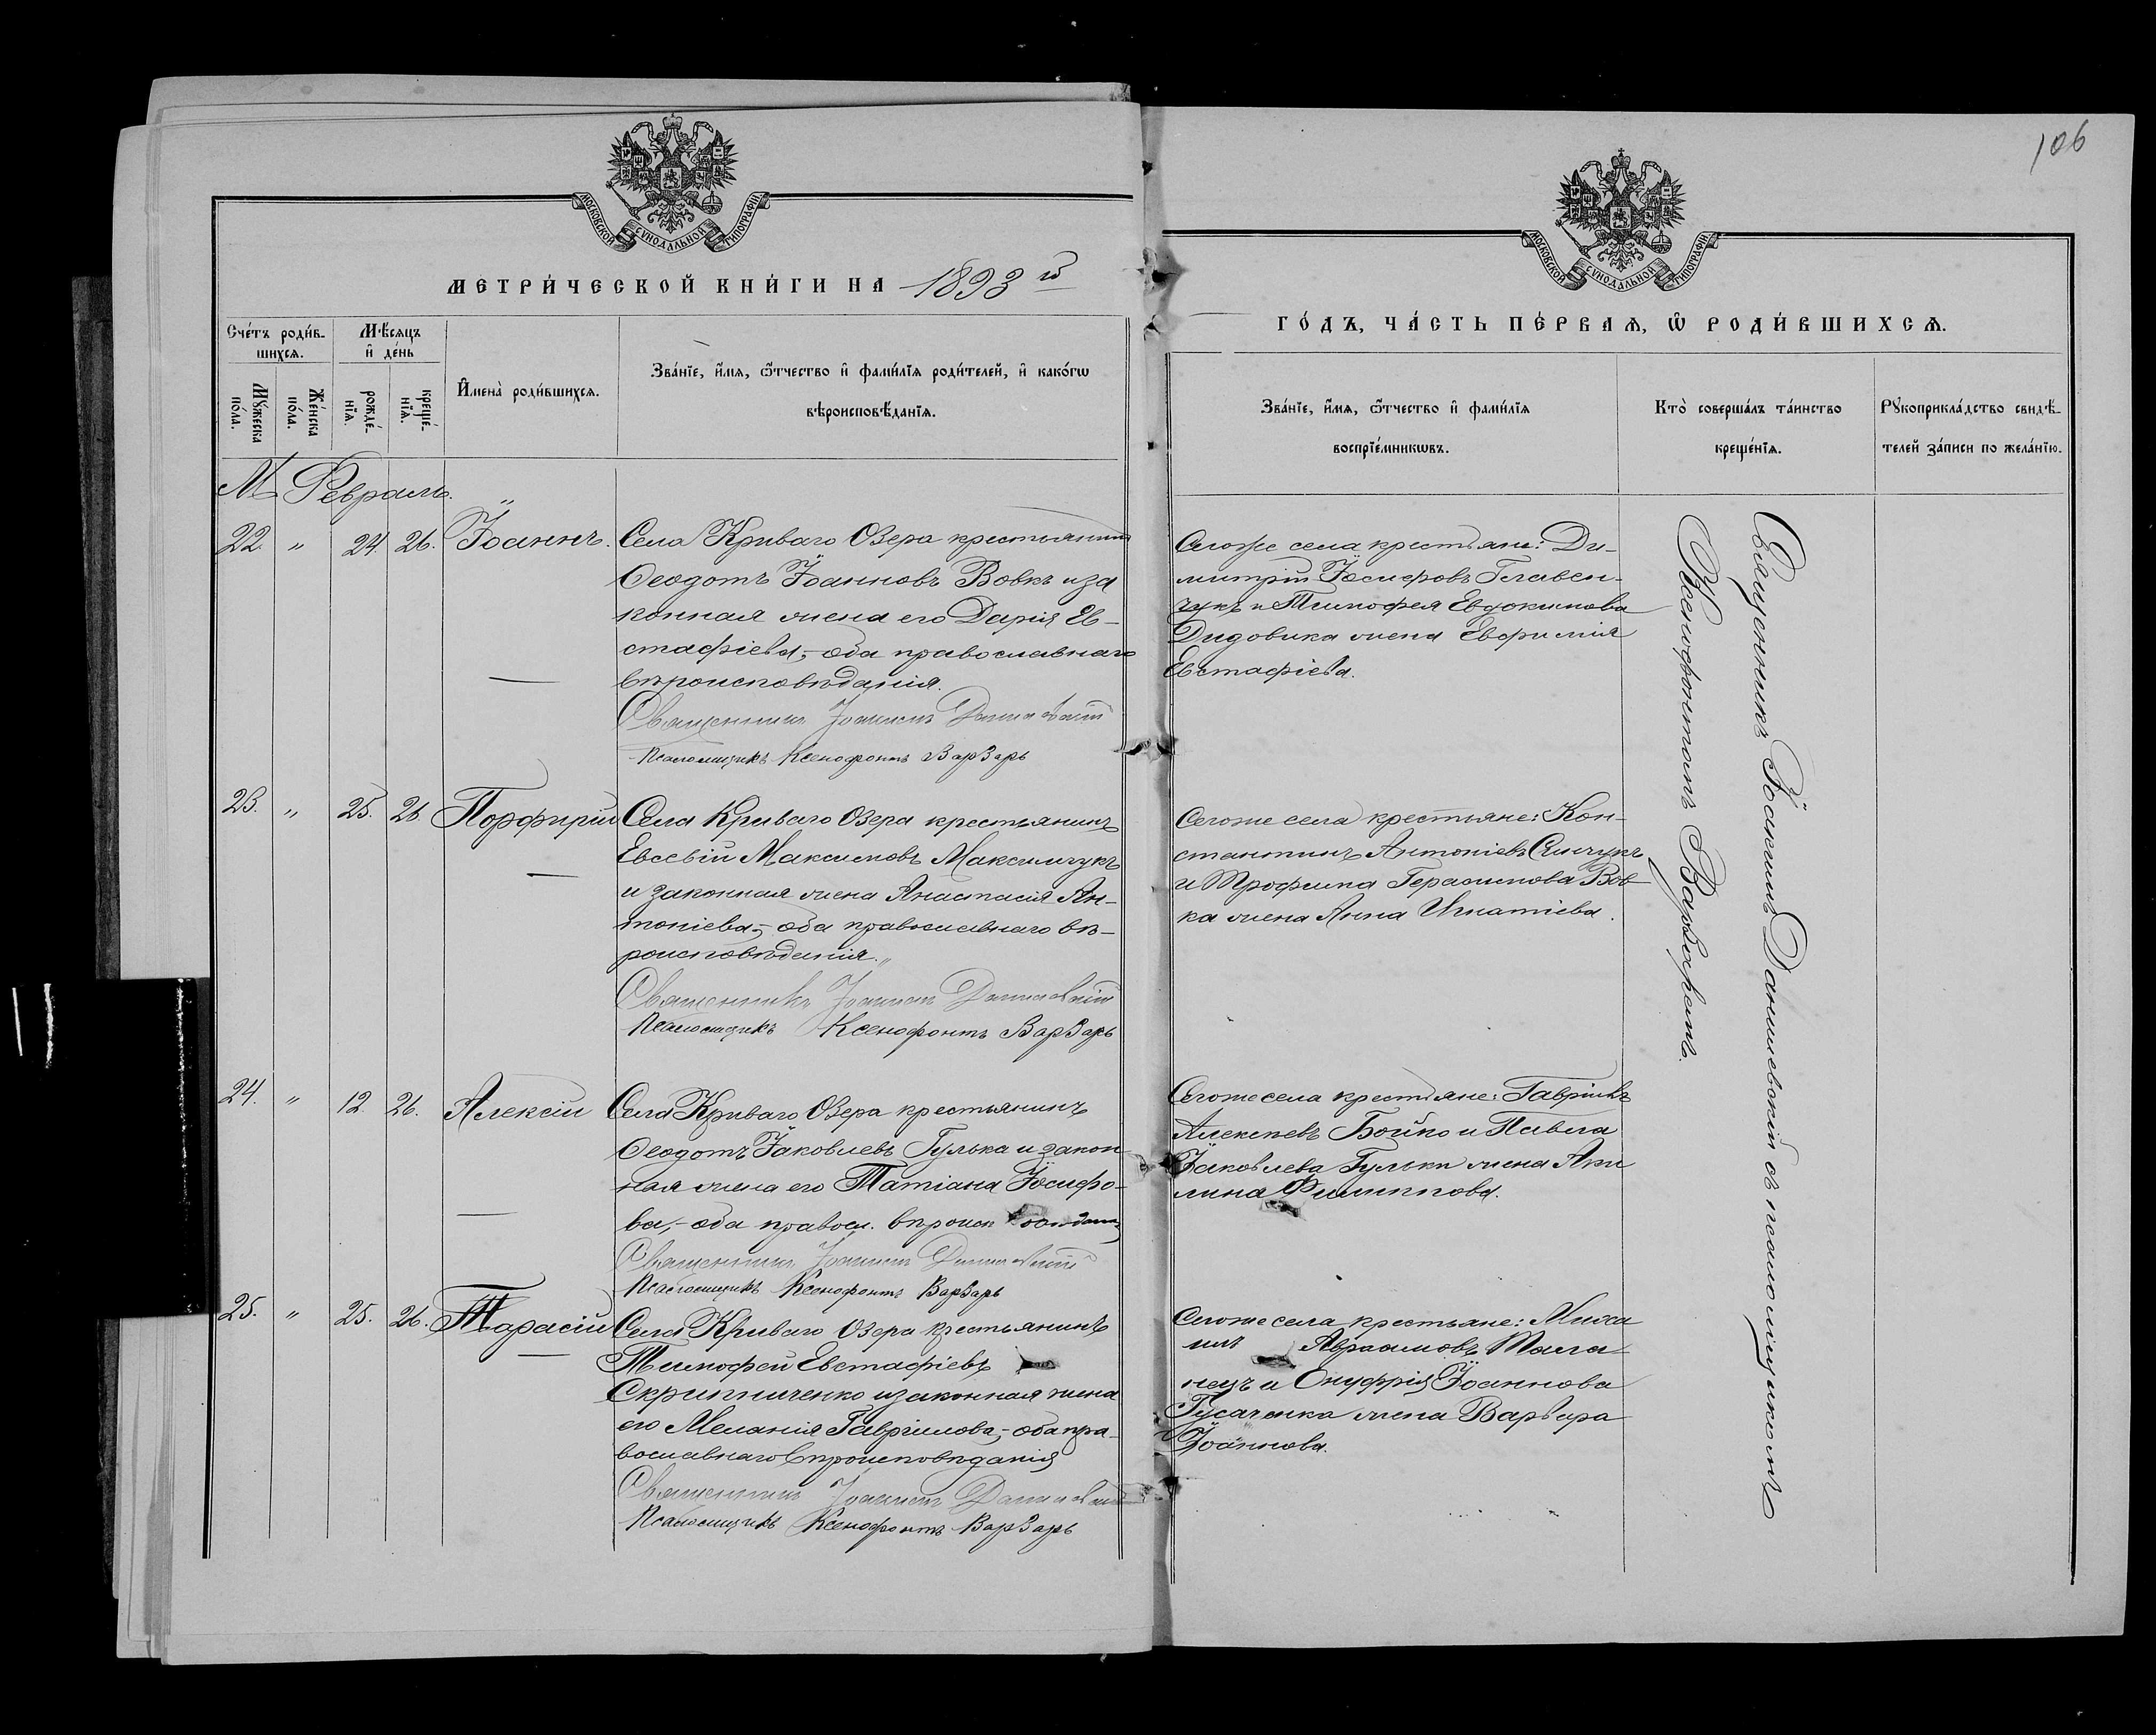 106
МОСКОВСКОЙ СѴНОДАЛЬНОЙ ТИПОГРАФІИ
МОСКОВСКОЙ СѴНОДАЛЬНОЙ ТИПОГРАФІИ
МЕТРИ́ЧЕСКОЙ КНИ́ГИ НА 1893 й
ГО́ДЪ, ЧА́СТЬ ПЕ́РВАѦ, Ѿ РОДИ́ВШИХСѦ.
Сче́тъ роди́в-
шихсѧ.
Мѣ́сяцъ
и҆ де́нь
Мꙋ́жеска по́ла.
Же́нска по́ла.
рожде́-
нїѧ.
креще́-
нїѧ.
И҆мена̀ роди́вшихсѧ.
Зва́нїе, и҆́мѧ, ѻ҆́тчество и҆ фами́лїѧ роди́телей, и҆ како́гѡ
вѣроисповѣ́данїѧ.
Зва́нїе, и҆́мѧ, ѻ҆́тчество и҆ фами́лїѧ
воспрїе́мникѡвъ.
Кто̀ соверша́лъ та́инство
креще́нїѧ.
Рꙋкоприкла́дство свидѣ́-
телей за́писи по жела́нїю.
М. Февраль.
22. " 24 26. Іоаннъ.
Села Криваго Озера крестьянинъ
Ѳеодотъ Іоанновъ Вовкъ и за
конная жена его Дарія Ев-
стафіева,- оба православнаго
вѣроисповѣданія.
Священникъ Іоакимъ Данилевскій
Псаломщикъ Ксенофонтъ Варваръ
Сегоже села крестьяне: Ди-
митрій Іосифовъ Главен-
чукъ и Тимофея Евдокимова
Дидовика жена Евфимія
Евстафіева.
23. " 25. 26 Порфирій
Села Криваго Озера крестьянинъ
Евсевій Максимовъ Максимчукъ
и законная жена Анастасія Ан-
тоніева,- оба православнаго вѣ-
роисповѣданія.
Священникъ Іоакимъ Данилевскій
Псаломщикъ Ксенофонтъ Варваръ
Сегоже села крестьяне: Кон-
стантинъ Антоніевъ
и Трофима Герасимова Вов-
ка жена Анна Игнатіева.
24. " 12. 26. Алексій
Села Криваго Озера крестьянинъ
Ѳеодотъ Іаковлевъ Гулька и закон
ная жена его Татіана Іосифо-
ва,- оба правосл. вѣроиск
Священникъ Іоакимъ Данилевскій
Псаломщикъ Ксенофонтъ Варваръ
Сегоже села крестьяне: Гавріилъ
Алексѣевъ Бойко и Павла
Іаковлева Гульки жена Аки
лина Филиппова.
25. " 25. 26. Тарасій
Села Криваго Озера крестьянинъ
Тимофей Евстафіевъ
Скрипниченко и законная жена
его Меланія Гавриілова,- оба пра-
вославнаго вѣроисповѣданія
Священникъ Іоакимъ Данилевскій
Псаломщикъ Ксенофонтъ Варваръ
Сегоже села крестьяне: Миха
илъ Авраамовъ Тала-
нецъ и Онуфрія Іоаннова
Гусаченка жена Варвара
Іоаннова.
Священникъ Іоакимъ Данилевскій съ псаломщикомъ
Ксенофонтомъ Варваремъ.